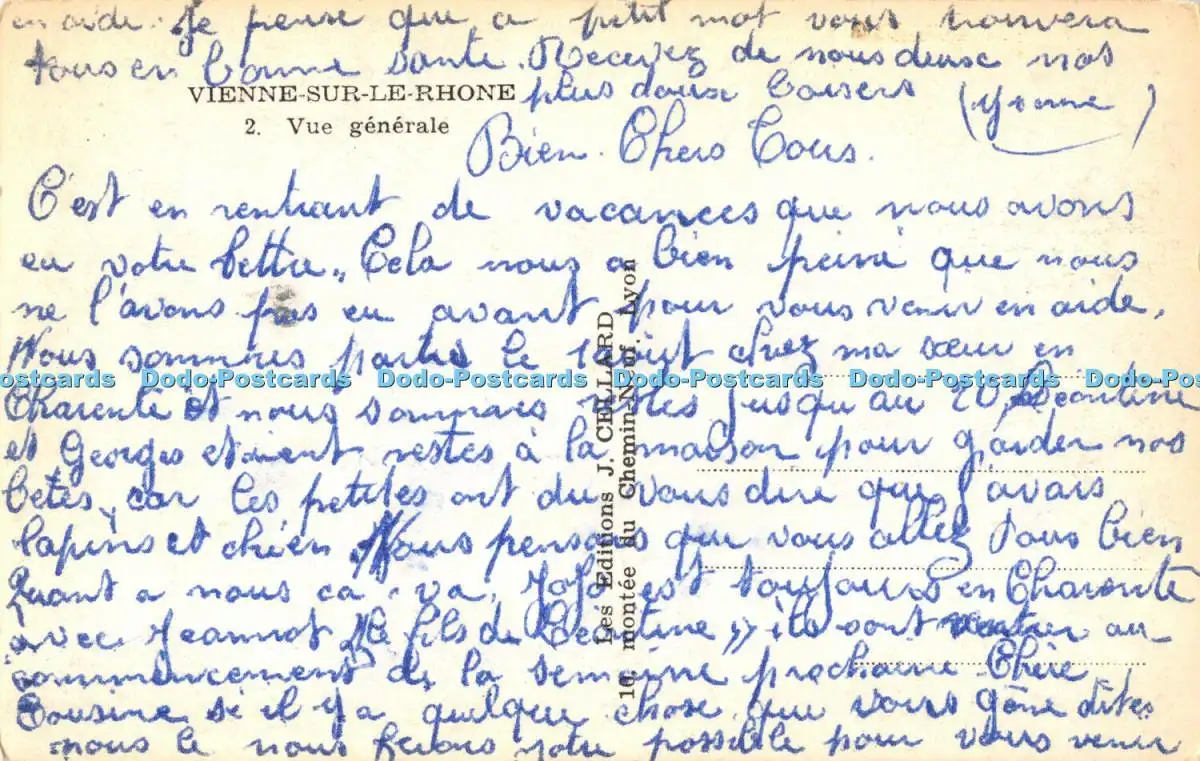 en aide. Je pense que a petit mot vous trouvera
tous en bonne sante. Recevez de nous deux nos
plus doux baisers (Yvonne)
VIENNE-SUR-LE-RHONE
2. Vue générale
Bien Chers Tous.
C'est en rentrant de vacances que nous avons
eu votre lettre,, Cela nous a bien peiné que nous
ne l'avons pas eu avant pour vous venir en aide.
Nous sommes partis le 1 août chez ma sœur en
Charente et nous sommes restes jusqu'au 20,
et Georges etaient restes à la maison pour garder nos
betes, car les petites ont du vous dire que j'avais
lapins et chien. Nous pensons que vous allez tous bien
Quant a nous ca . va. est toujours en Charente
avec Jeannot le fils de ils vont rentrer au
commencement de la semaine prochaine Chère
Cousine si il y a quelque chose que vous gêne dites
nous le nous ferons notre possible pour vous venir
Les Editions J. CELLARD
10, montée du Chemin-Neuf. Lyon
Dodo-Postcards Dodo-Postcards Dodo-Postcards Dodo-Postcards Dodo-Postcards Dodo-Postcards